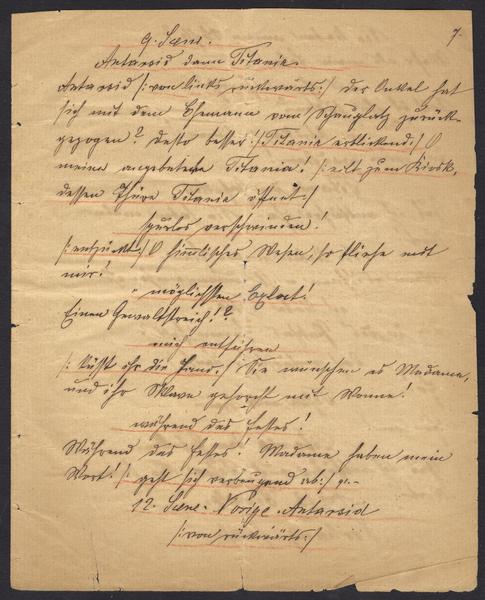 7.
9. Scene.
Antarsid dann Titania.
Antarsid /: von links rückwärts :/ der Onkel hat
sich mit dem Ehemann vom Schauplatz zurück-
gezogen? Desto besser! /: Titania erblickend :/ O
meine angebetete Titania! /: eilt zum Kiosk,
dessen Thüre Titania öffnet :/
spurlos verschwinden!
/: entzückt :/ O himmlisches Wesen, so fliehe mit
mir!
" möglichsten Eclat!
Einen Gewaltstreich!?
mich entführen
/: küsst ihr die Hand :/ Sie wünschen es Madame,
und ihr Sklave gehorcht mit Wonne!
während des Festes!
Während des Festes! Madame haben mein
Wort! /: geht sich verbeugend ab :/
12. Scene. Vorige. Antarsid
/: von rückwärts :/